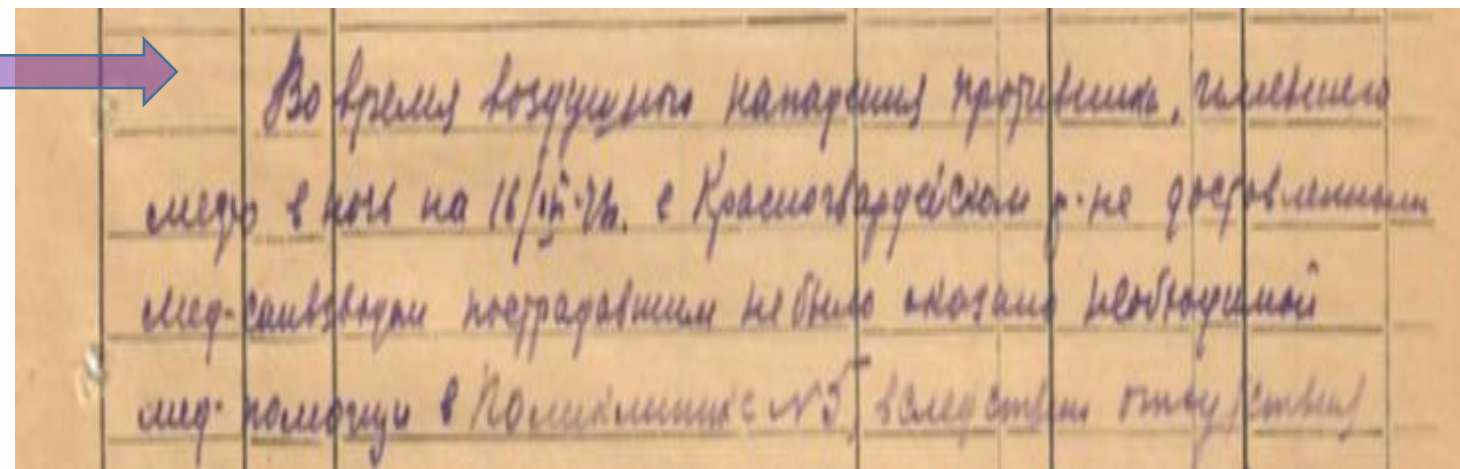 Во время воздушного нападения противника, имевшего
место в ночь на 16/III-42г. в Красногвардейском р-не доставленным
мед-санвзводом пострадавшим не было оказано необходимой
мед-помощи в Поликлинике №5, вследствие отсутствия